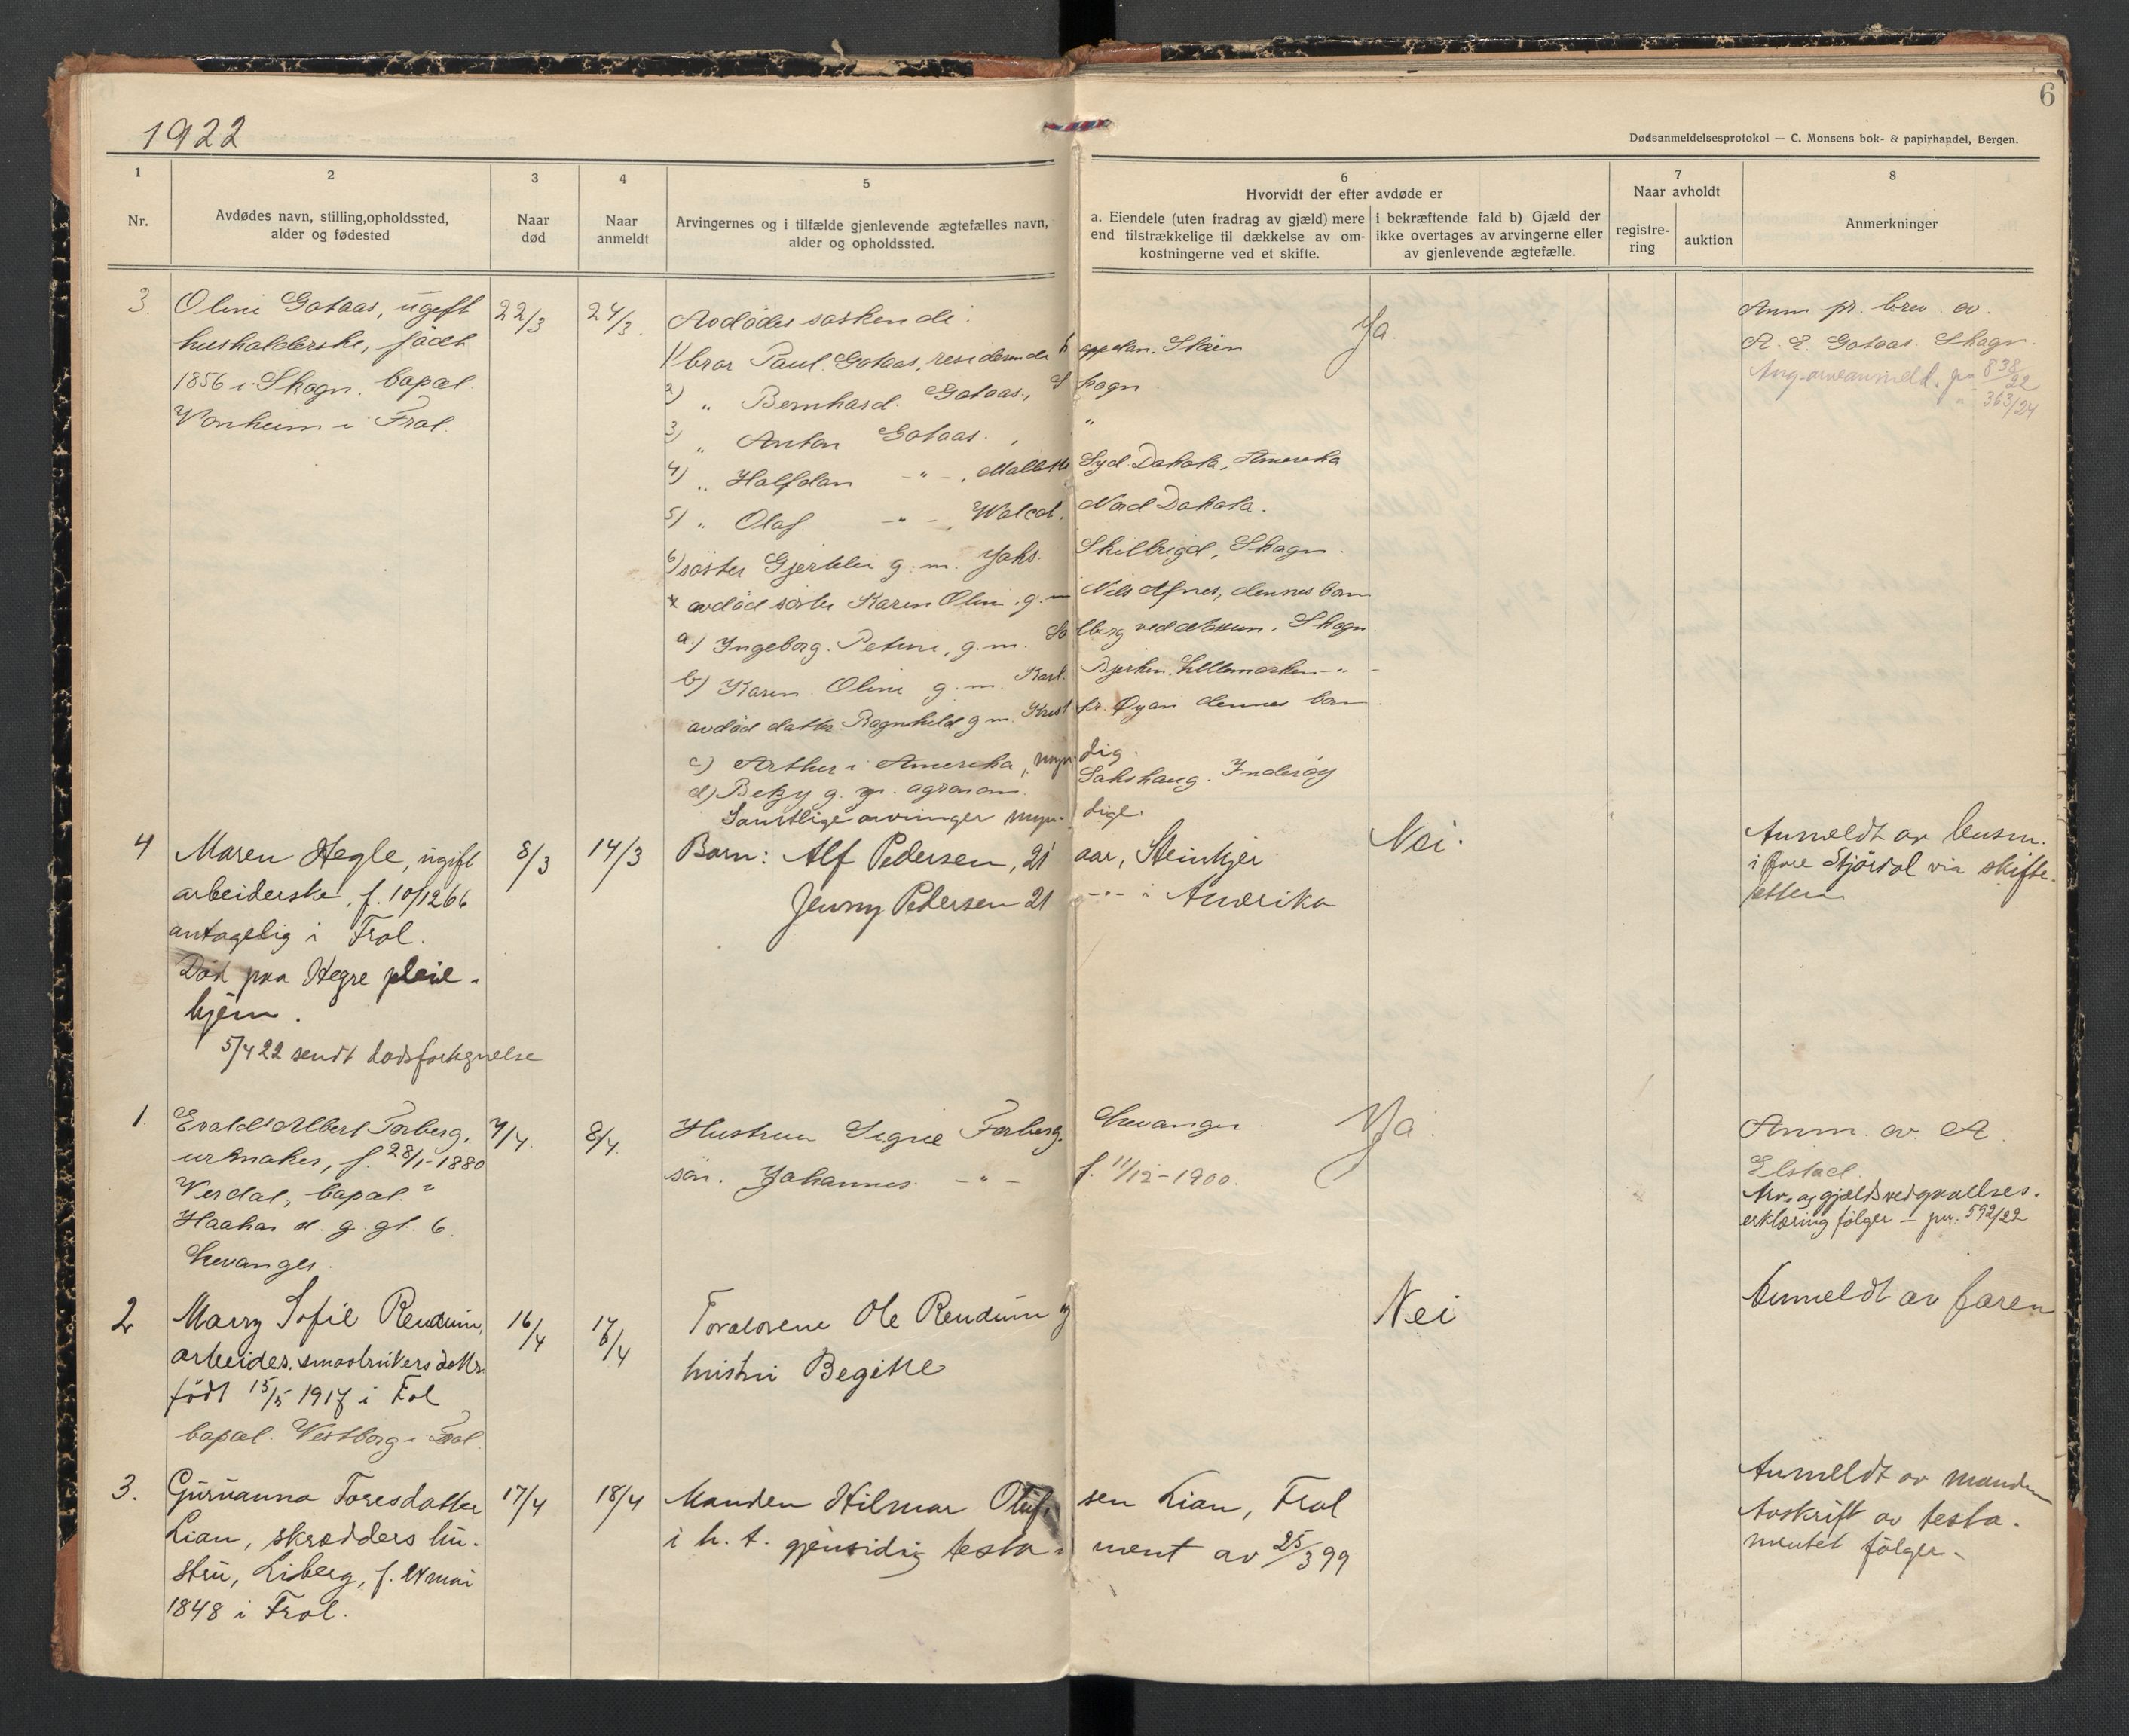 6
1922
Dødsanmeldelsesprotokol — C. Monsens bok- & papirhandel, Bergen.
1
Nr.
2
Avdødes navn, stilling, opholdssted,
alder og fødested
3
Naar
død
4
Naar
anmeldt
5
Arvingernes og i tilfælde gjenlevende ægtefælles navn,
alder og opholdssted.
6
Hvorvidt der efter avdøde er
a. Eiendele (uten fradrag av gjæld) mere
end tilstrækkelige til dækkelse av om-
kostningerne ved et skifte.
i bekræftende fald b) Gjæld der
ikke overtages av arvingerne eller
av gjenlevende ægtefælle.
7
Naar avholdt
registre-
ring
auktion
8
Anmerkninger
3.
Oline Gotaas, ugift
husholderske, født
1856 i Skogn. bopæl
Vonheim i Frol.
22/3
24/3.
Avdødes søskende:
1) bror Paul Gotaas, residerende kappelan. Støren
2) " Bernhard Gotaas, Skogn
3) " Anton Gotaas, "
4) " Halfdan -"-, Syd Dakota, Amerika
5) " Olaf -"- Walcot, Nord Dakota.
6) søster g. m. Johs. Skogn.
x avdød søster Karen Oline g. m Nils dennes barn
a.) Ingeborg Petrine, g. m. Solberg ved Skogn.
b) Karen Oline g. m. Karl Bjerken, -"-
avdød datter Ragnhild g m. Øyan dennes barn
c) Arthur i Amerika, myndig.
d) Betzy g. m. agronom Sakshaug. Inderøy
Samtlige arvinger myndige.
Ja.
Anm pr. brev av
A. E. Gotaas Skogn.
838/22
363/24
4
Maren Hegle, ugift
arbeiderske, f. 10/12 66
antagelig i Frol.
Død paa Hegre pleie-
hjem.
5/4 22 sendt dødsfortegnelse
8/3
14/3
Barn: Alf Pedersen, 21 aar, Steinkjer
Jenny Pedersen 21 -"- i Amerika
Nei.
Anmeldt av lensm.
i Øvre Stjørdal via skifte-
retten
1.
Evald Albert Forberg,
urmaker, f. 28/1-1880
Verdal, bopæl
Haakon d. g. gt. 6.
Levanger.
7/4.
8/4.
Hustru Signe Forberg, Levanger.
søn. Johannes -"- f. 11/12-1900.
Ja.
Anm. av A
Elstad
Arv- og gjældsvedgaaelses-
erklæring følger - jnr. 592/22
2
Marry Sofie Rendum,
arbeider, smaabrukers datter
født 15/5 1917 i Frol
bopæl. Vestborg i Frol.
16/4
17/4
Forældrene Ole Rendum og
hustru Begitte
Nei
Anmeldt av faren
3.
Guruanna Toresdatter
Lian, skrædders hu-
stru, Liberg, f. 24 mai
1848 i Frol.
17/4
18/4
Manden Hilmar Olufsen Lian, Frol
i h. t. gjensidig testament av 25/3 99
Anmeldt av manden
Avskrift av testa-
mentet følger -